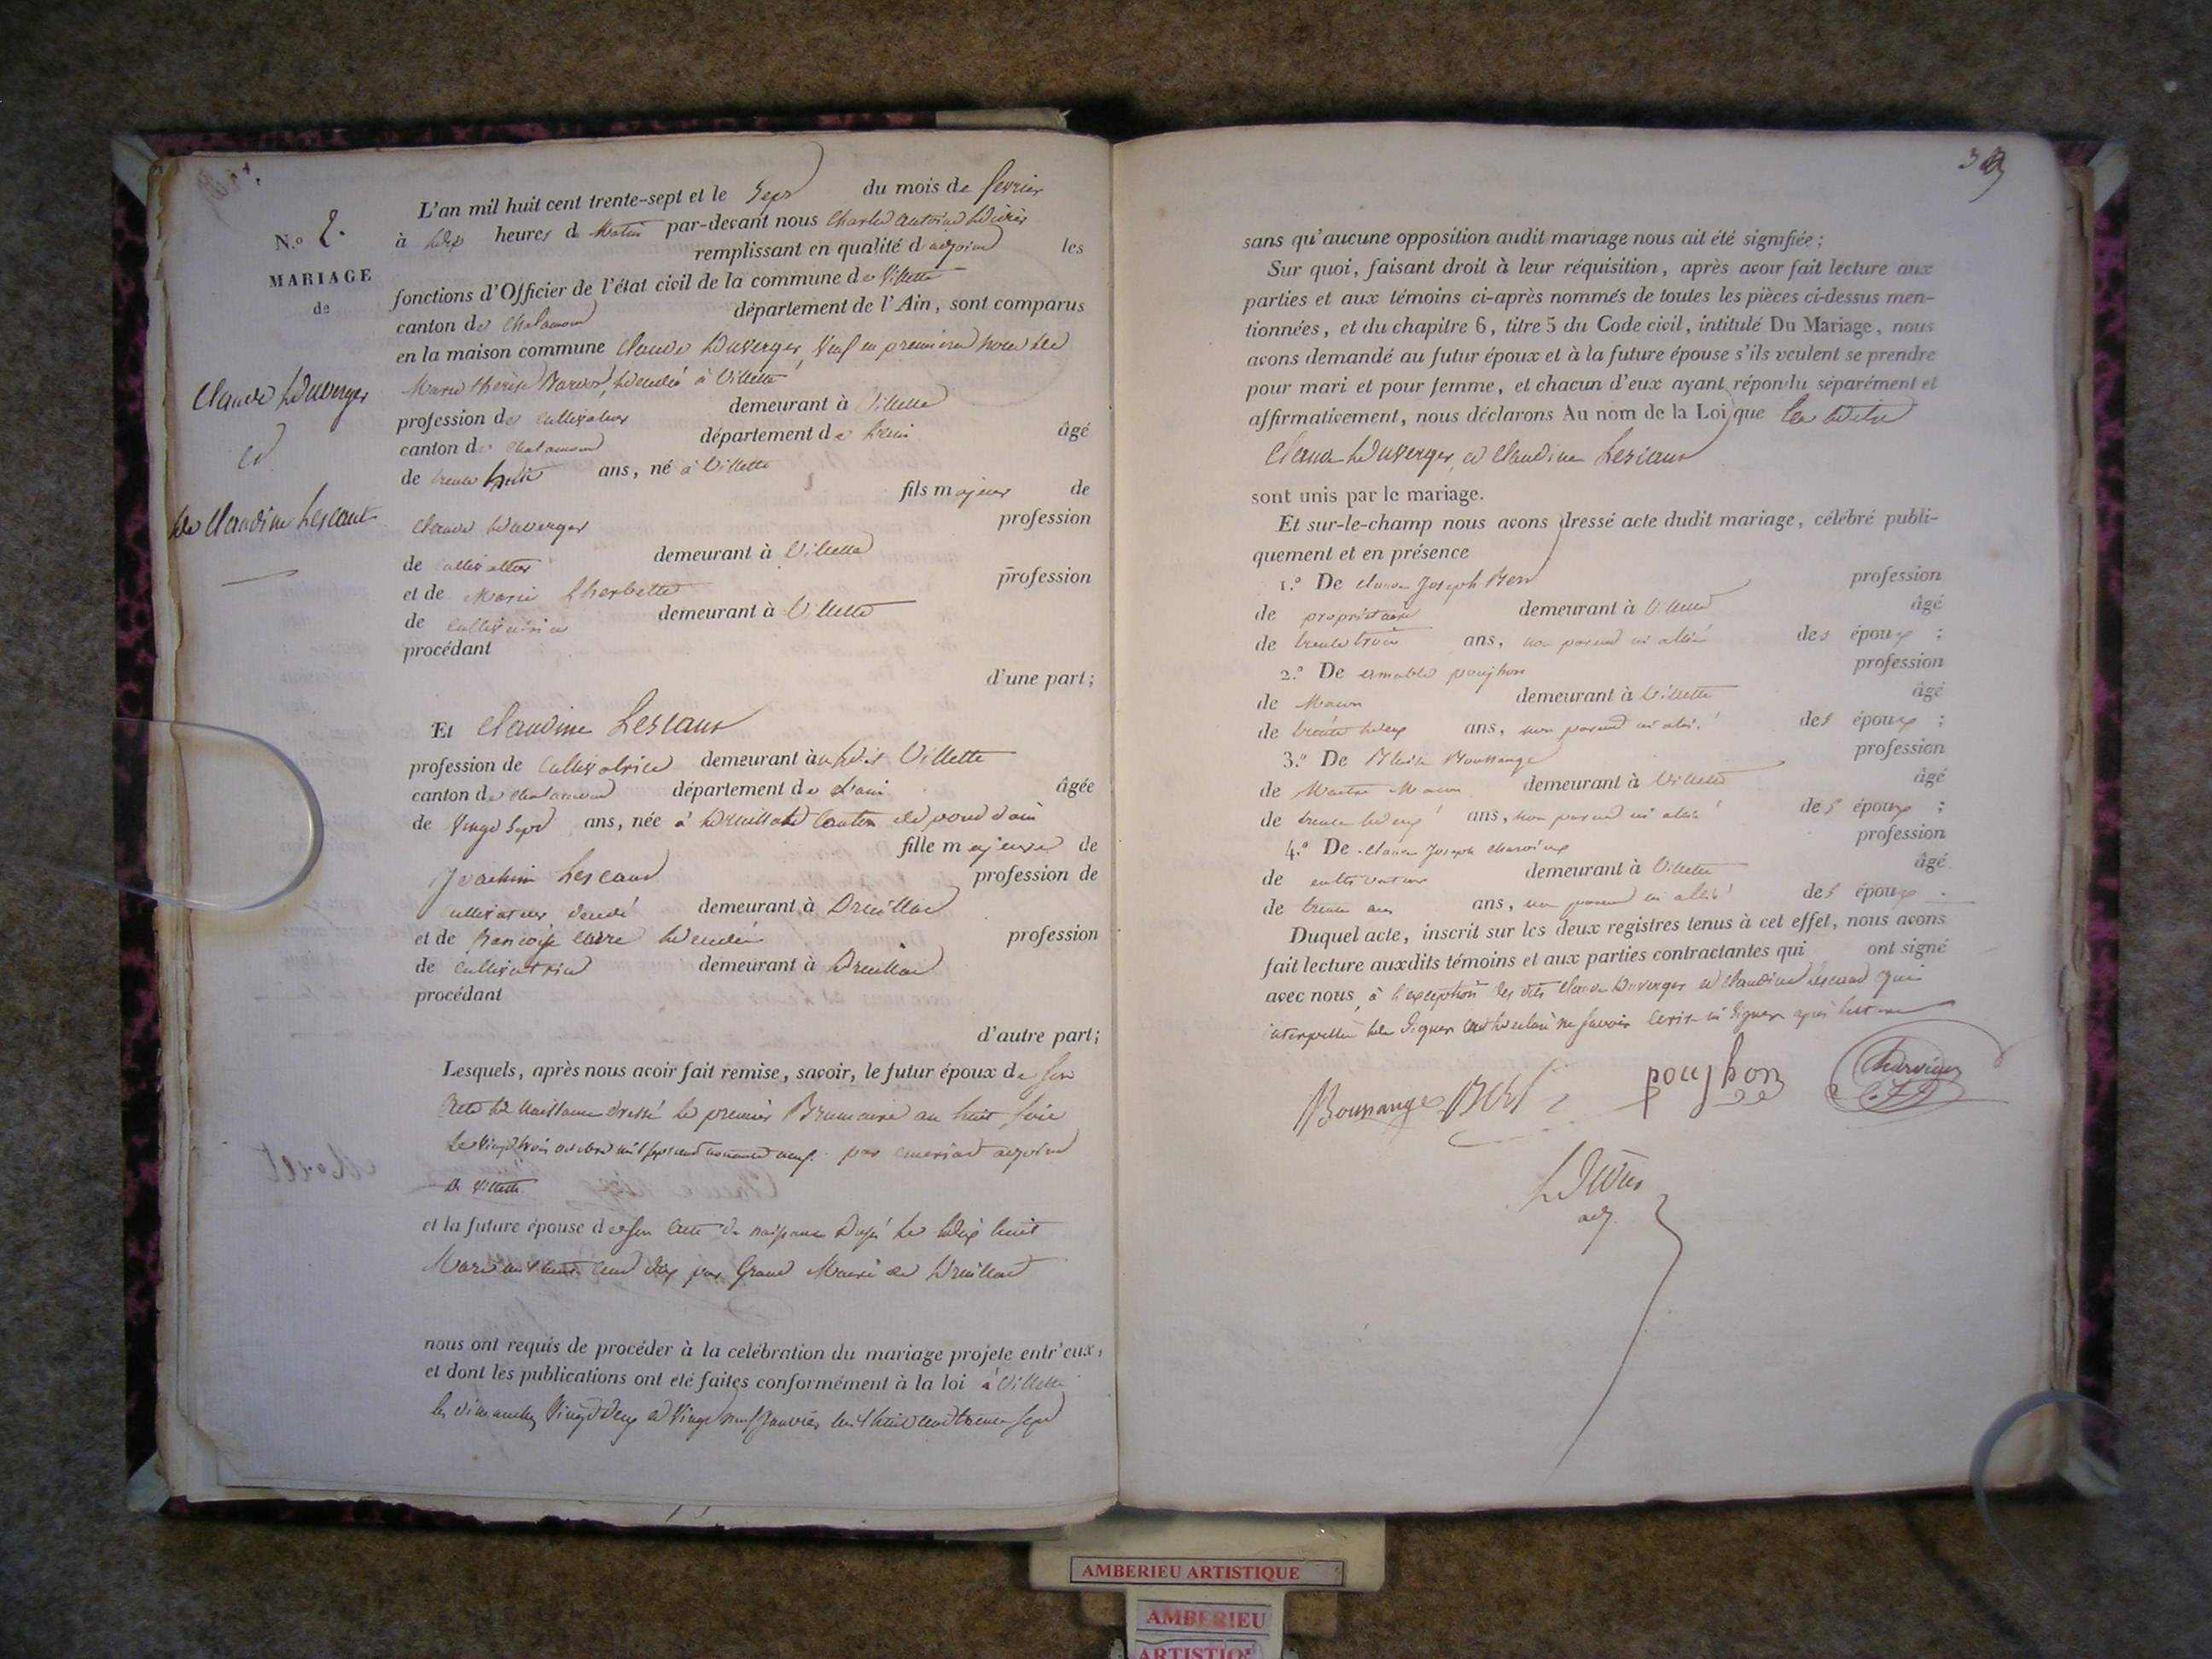 N.º 2.
MARIAGE
de
Claude Duverger
et
de Claudine Lescaut
L'an mil huit cent trente-sept et le Sept du mois de fevrier
à dix heures d Matin par-devant nous Charles antoine
remplissant en qualité d'adjoint les
fonctions d'Officier de l'état civil de la commune de Villette
canton de Chalamont département de l'Ain, sont comparus
en la maison commune Claude Duverger, Veuf en premiere noce de
Marie therèse décédé à Villette
profession de cultivateur demeurant à Villette
canton de Chalamont département de l'ain âgé
de trente sept ans, né à Villette
fils majeur de
Claude Duverger profession
de cultivateur demeurant à Villette
et de Marie Lherbette profession
de cultivatrice demeurant à Villette
procédant
d'une part;
Et Claudine Lescaut
profession de Cultivatrice demeurant audit Villette
canton de Chalamont département de L'ain âgée
de Vingt Sept ans, née à Druillat Canton de pont d'ain
fille majeure de
Joachim Lescaut profession de
cultivateur demeurant à Druillat
et de francoise décédée profession
de cultivatrice demeurant à Druillat
procédant
d'autre part;
Lesquels, après nous avoir fait remise, savoir, le futur époux de son
acte de naissance dressé le premier Brumaire an huit, soit
le Vingt trois octobre mil sept cent nonante neuf par adjoint
de Villette
et la future épouse de son acte de naissance Dressé le dix huit
Mars mil huit cent dix par Grand Maire de Druillat
nous ont requis de procéder à la célébration du mariage projeté entr'eux,
et dont les publications ont été faites conformément à la loi à Villette
les dimanches Vingt deux et Vingt neuf Janvier mil huit cent trente sept
sans qu'aucune opposition audit mariage nous ait été signifiée;
Sur quoi, faisant droit à leur réquisition, après avoir fait lecture aux
parties et aux témoins ci-après nommés de toutes les pièces ci-dessus men-
tionnées, et du chapitre 6, titre 5 du Code civil, intitulé Du Mariage, nous
avons demandé au futur époux et à la future épouse s'ils veulent se prendre
pour mari et pour femme, et chacun d'eux ayant répondu séparément et
affirmativement, nous déclarons Au nom de la Loi que les dits
Claude Duverger et Claudine Lescaut
sont unis par le mariage.
Et sur-le-champ nous avons dressé acte dudit mariage, célébré publi-
quement et en présence
1.º De claude Joseph profession
de propriétaire demeurant à Villette âgé
de trente trois ans, non parent ni allié des époux ;
2.º De aimable poujhon profession
de Maçon demeurant à Villette âgé
de trente deux ans, non parent ni allié des époux ;
3.º De Boussange profession
de Maitre Maçon demeurant à Villette âgé
de trente deux ans, non parent ni allié des époux ;
4.º De claude Joseph profession
de cultivateur demeurant à Villette âgé
de trente ans ans, non parent ni allié des époux .
Duquel acte, inscrit sur les deux registres tenus à cet effet, nous avons
fait lecture auxdits témoins et aux parties contractantes qui ont signé
avec nous, à l'exception des dits claude Duverger et Claudine Lescaut qui
interpellé de Signer ont déclaré ne Savoir écrire ni Signer après lecture
Boussange poujhon
adj.
AMBERIEU ARTISTIQUE
AMBERIEU
ARTISTIQUE